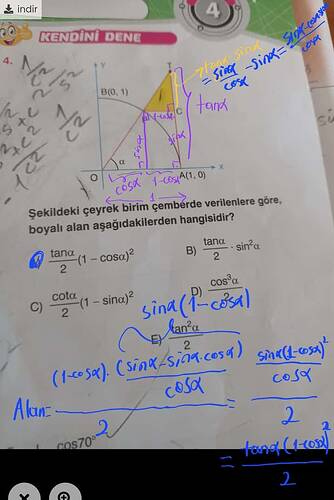 indir
4
KENDİNİ DENE
4.
y
T
B(0, 1)
C
1-cosα
tanα
sinα
sinα
α
O
A(1, 0)
x
cosα
1-cosα
1
tanα-sinα
= sinα/cosα - sinα = sinα-cosα·sinα/cosα
Şekildeki çeyrek birim çemberde verilenlere göre,
boyalı alan aşağıdakilerden hangisidir?
A) tanα/2 (1 – cosα)²
B) tanα/2 · sin²α
C) cotα/2 (1 – sinα)²
D) cos³α/2
E) tan²α/2
sinα(1-cosα)
Alan= (1-cosα)·(sinα-sinα·cosα)/cosα / 2 = sinα(1-cosα)²/cosα / 2
= tanα(1-cosα)²/2
cos70°